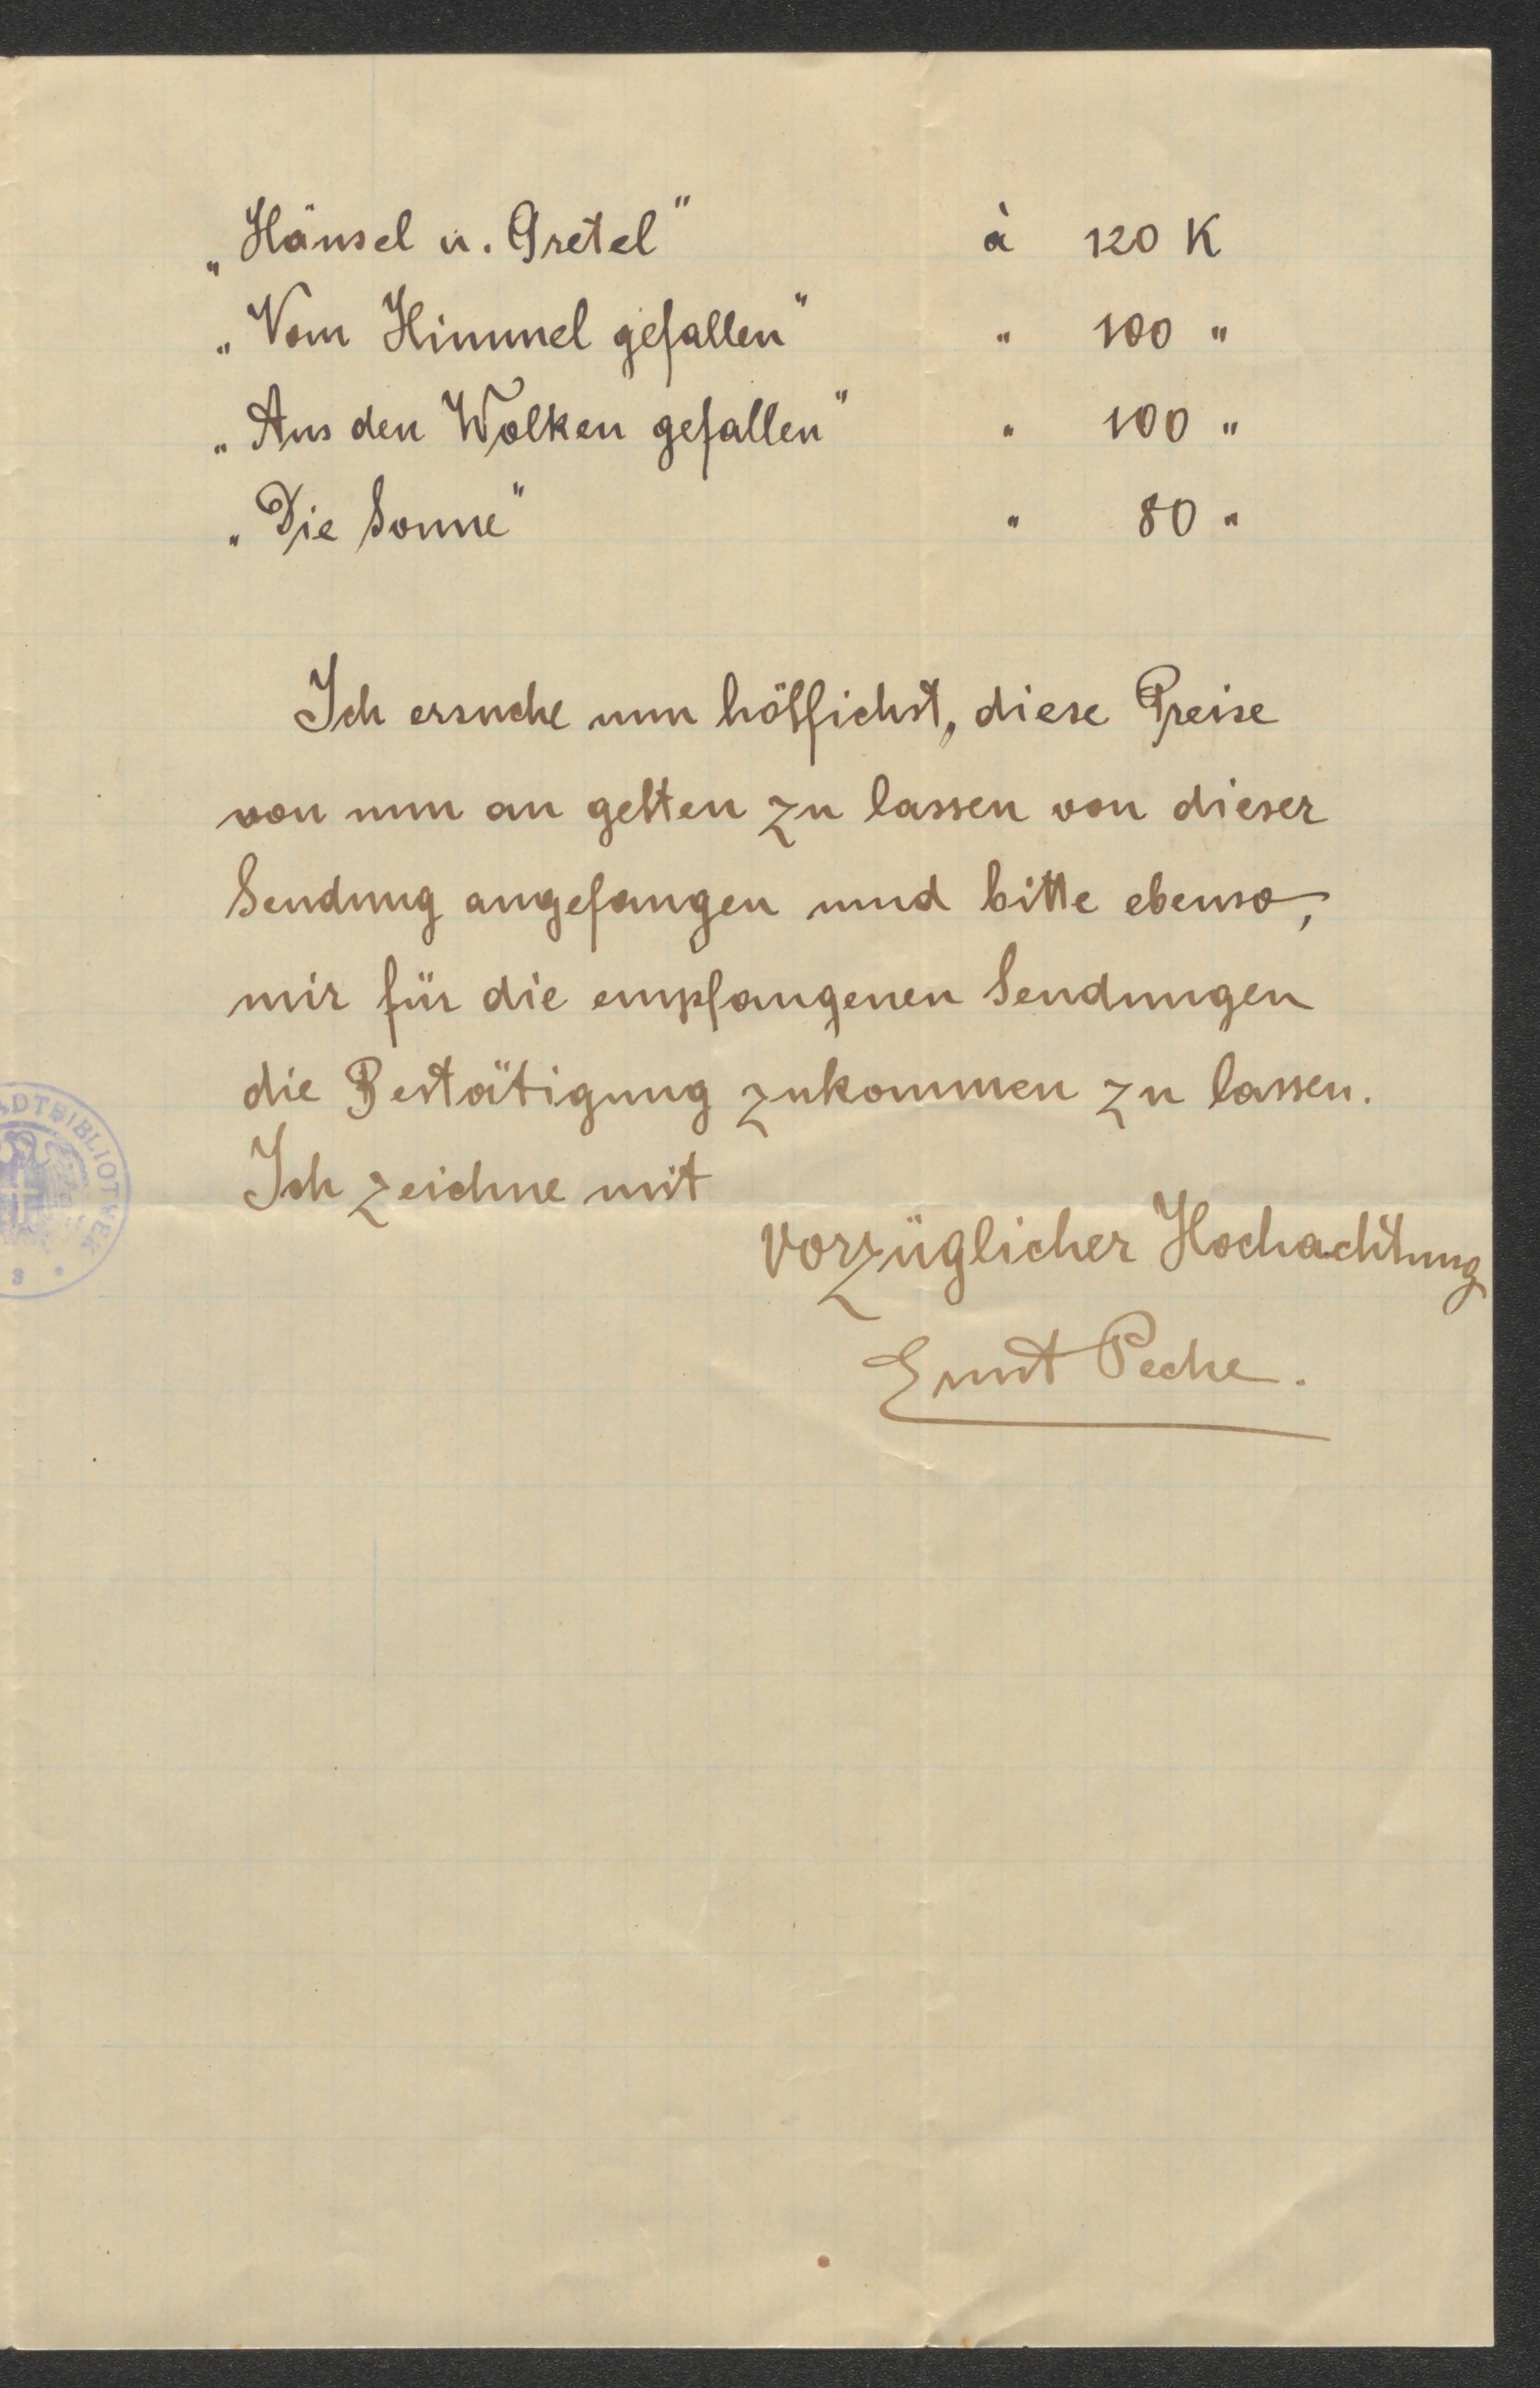 „Hänsel u. Gretel" à 120 K
„Vom Himmel gefallen" " 100 "
„Aus den Wolken gefallen" " 100 "
„Die Sonne" " 80 "
Ich ersuche nun höflichst, diese Preise
von nun an gelten zu lassen von dieser
Sendung angefangen und bitte ebenso,
mir für die empfangenen Sendungen
die Bestätigung zukommen zu lassen.
Ich zeichne mit
vorzüglicher Hochachtung
Ernst Peche.
ADTBIBLIOTHEK